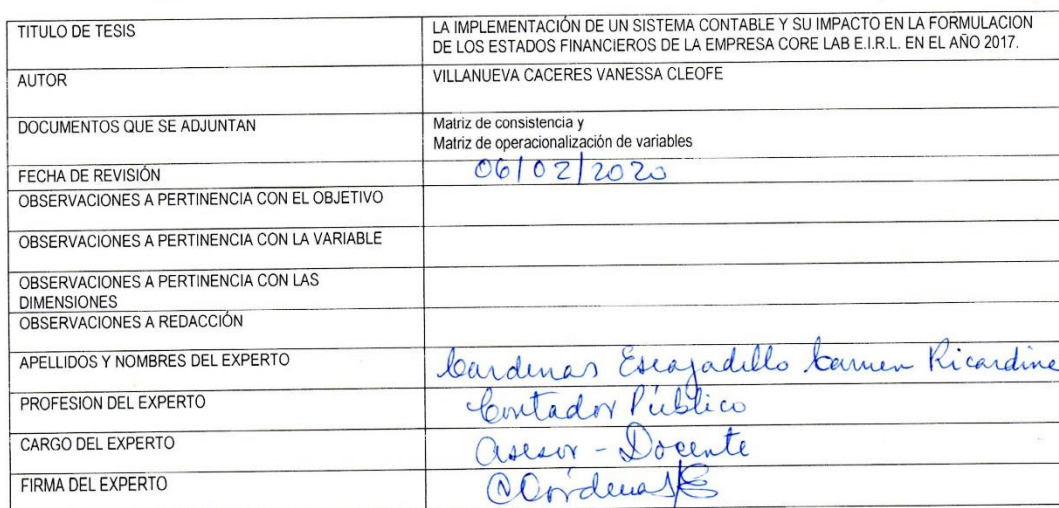 TITULO DE TESIS
LA IMPLEMENTACIÓN DE UN SISTEMA CONTABLE Y SU IMPACTO EN LA FORMULACION
DE LOS ESTADOS FINANCIEROS DE LA EMPRESA CORE LAB E.I.R.L. EN EL AÑO 2017.
AUTOR
VILLANUEVA CACERES VANESSA CLEOFE
DOCUMENTOS QUE SE ADJUNTAN
Matriz de consistencia y
Matriz de operacionalización de variables
FECHA DE REVISIÓN
06/02/2020
OBSERVACIONES A PERTINENCIA CON EL OBJETIVO
OBSERVACIONES A PERTINENCIA CON LA VARIABLE
OBSERVACIONES A PERTINENCIA CON LAS
DIMENSIONES
OBSERVACIONES A REDACCIÓN
APELLIDOS Y NOMBRES DEL EXPERTO
Cardenas Escajadillo Carmen Ricardine
PROFESION DEL EXPERTO
Contador Público
CARGO DEL EXPERTO
Asesor - Docente
FIRMA DEL EXPERTO